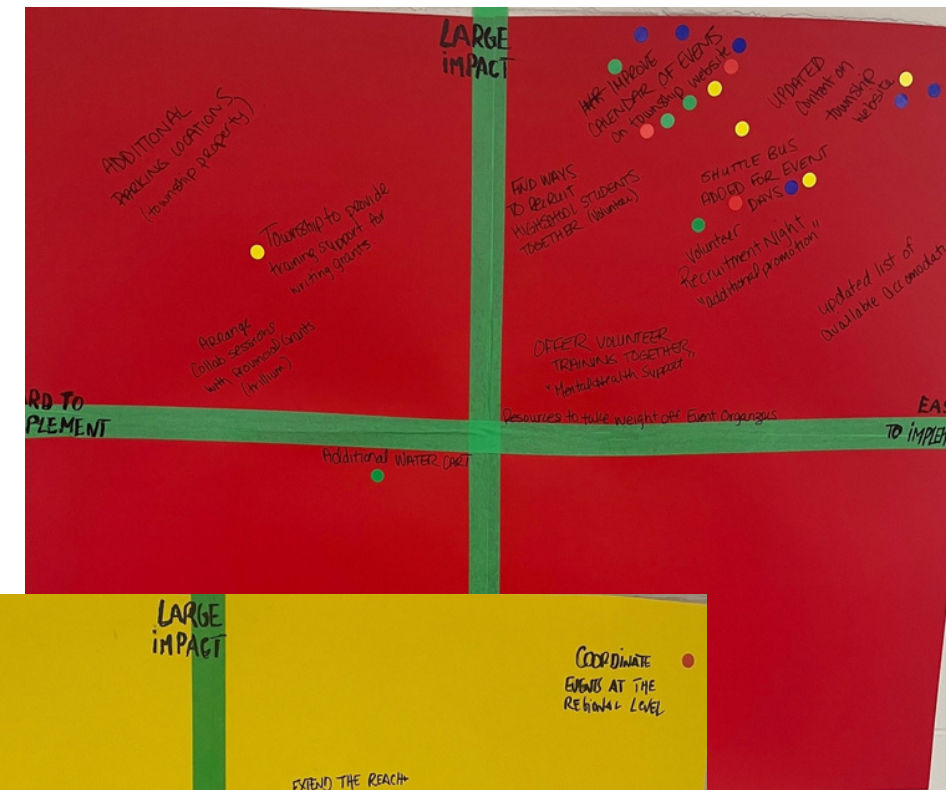 LARGE
iMPACT
ADDITIONAL
PARKING LOCATIONS
(township property)
Township to provide
training support for
writing grants
ARRANGE
Collab sessions
with provincial Grants
(trillium)
IMPROVE
CALENDAR OF EVENTS
on township website
UPDATED
content on
township
website
FIND WAYS
TO RECRUIT
HIGHSCHOOL STUDENTS
TOGETHER (Volunteer)
SHUTTLE BUS
ADDED FOR EVENT
DAYS
Volunteer
Recruitment Night
"additional promotion"
updated list of
available accomodati
OFFER VOLUNTEER
TRAINING TOGETHER
"Mental Health Support"
RD TO
PLEMENT
Resources to take weight off Event Organizers
EAS
TO iMPLEM
Additional WATER CART
LARGE
iMPACT
COORDINATE
EVENTS AT THE
REGIONAL LEVEL
EXTEND THE REACH+